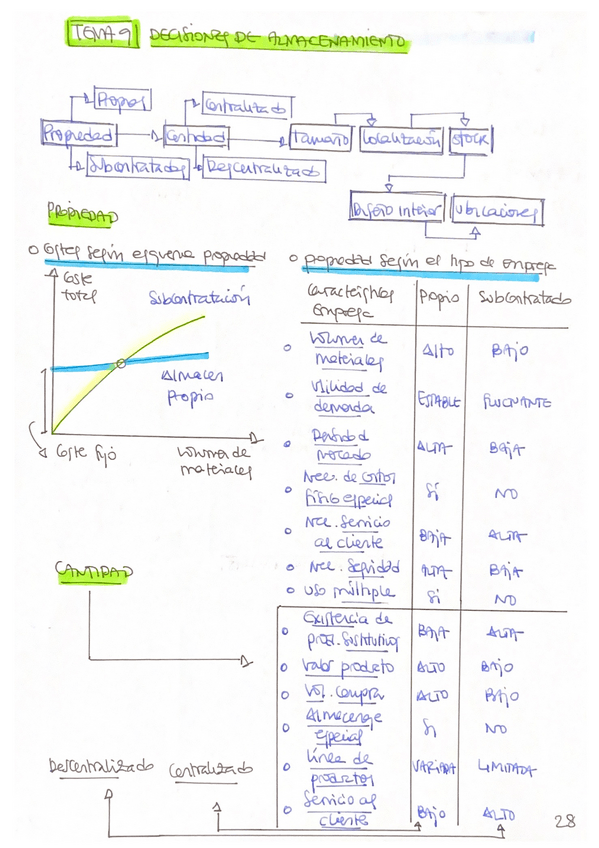 TEMA 9 DECISIONES DE ALMACENAMIENTO
Propios
Centralizado
Propiedad
Cantidad
Tamaño
Localización
STOCK
Subcontratados
Descentralizado
Diseño interior
Ubicaciones
PROPIEDAD
Costes según esquema propiedad
Coste total
Subcontratación
Almacen Propio
Coste fijo
Volumen de materiales
propiedad según el tipo de empresa
Características Empresa
Propio
Subcontratado
Volumen de materiales
Alto
BAjo
demanda
ESTABLE
FLUCTUANTE
Densidad mercado
ALTA
BAjA
Nec. de control físico especial
Sí
NO
Nec. Servicio al cliente
BAjA
ALTA
Nec. Seguridad
ALTA
BAjA
Uso múltiple
Si
NO
CANTIDAD
Existencia de prod. Sustitutivos
BAjA
ALTA
Valor producto
ALTO
BAjo
Vol. Compra
ALTO
BAjo
Almacenaje especial
Si
NO
Línea de productos
VARIADA
LIMITADA
Servicio al cliente
BAjo
ALTO
Descentralizado
Centralizado
28